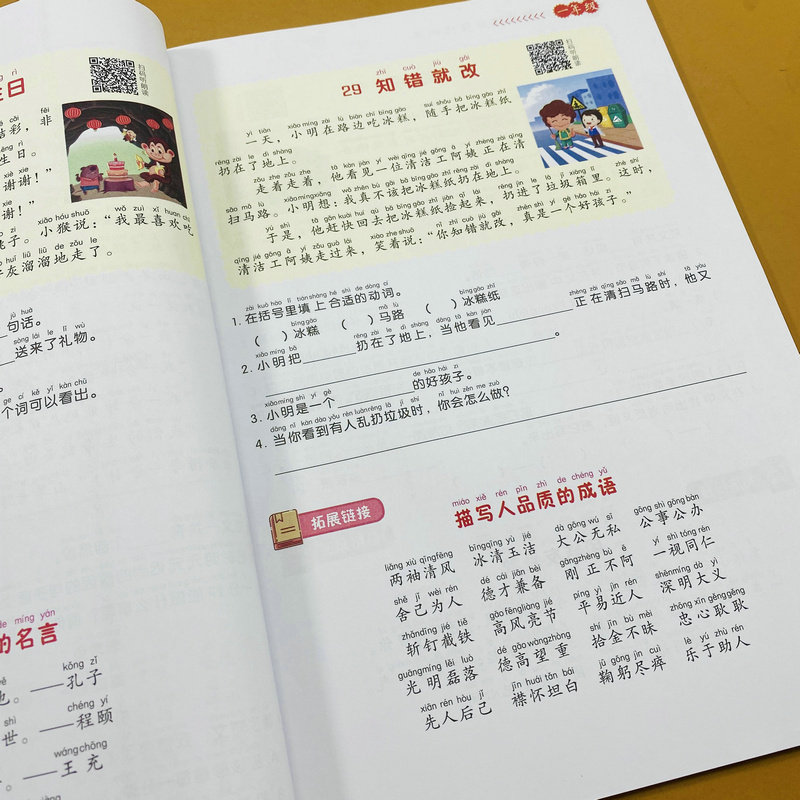 日
结彩，非
生日。
谢谢！”
谢！”
桃子。小猴说：“我最喜欢吃
灰溜溜地走了。
句话。
送来了礼物。
个词可以看出。
的名言
——孔子
世。——程颐
——王充
一年级
29 知错就改
扫码听朗读
一天，小明在路边吃冰糕，随手把冰糕纸
扔在了地上。
走着走着，他看见一位清洁工阿姨正在清
扫马路。小明想：我真不该把冰糕纸扔在地上。
于是，他赶快回去把冰糕纸捡起来，扔进了垃圾箱里。这时，
清洁工阿姨走过来，笑着说：“你知错就改，真是一个好孩子。”
1. 在括号里填上合适的动词。
（ ）冰糕 （ ）马路 （ ）冰糕纸
2. 小明把______扔在了地上，当他看见______正在清扫马路时，他又
______。
3. 小明是一个______的好孩子。
4. 当你看到有人乱扔垃圾时，你会怎么做？
拓展链接
描写人品质的成语
两袖清风 冰清玉洁 大公无私 公事公办
舍己为人 德才兼备 刚正不阿 一视同仁
斩钉截铁 高风亮节 平易近人 深明大义
光明磊落 德高望重 拾金不昧 忠心耿耿
先人后己 襟怀坦白 鞠躬尽瘁 乐于助人